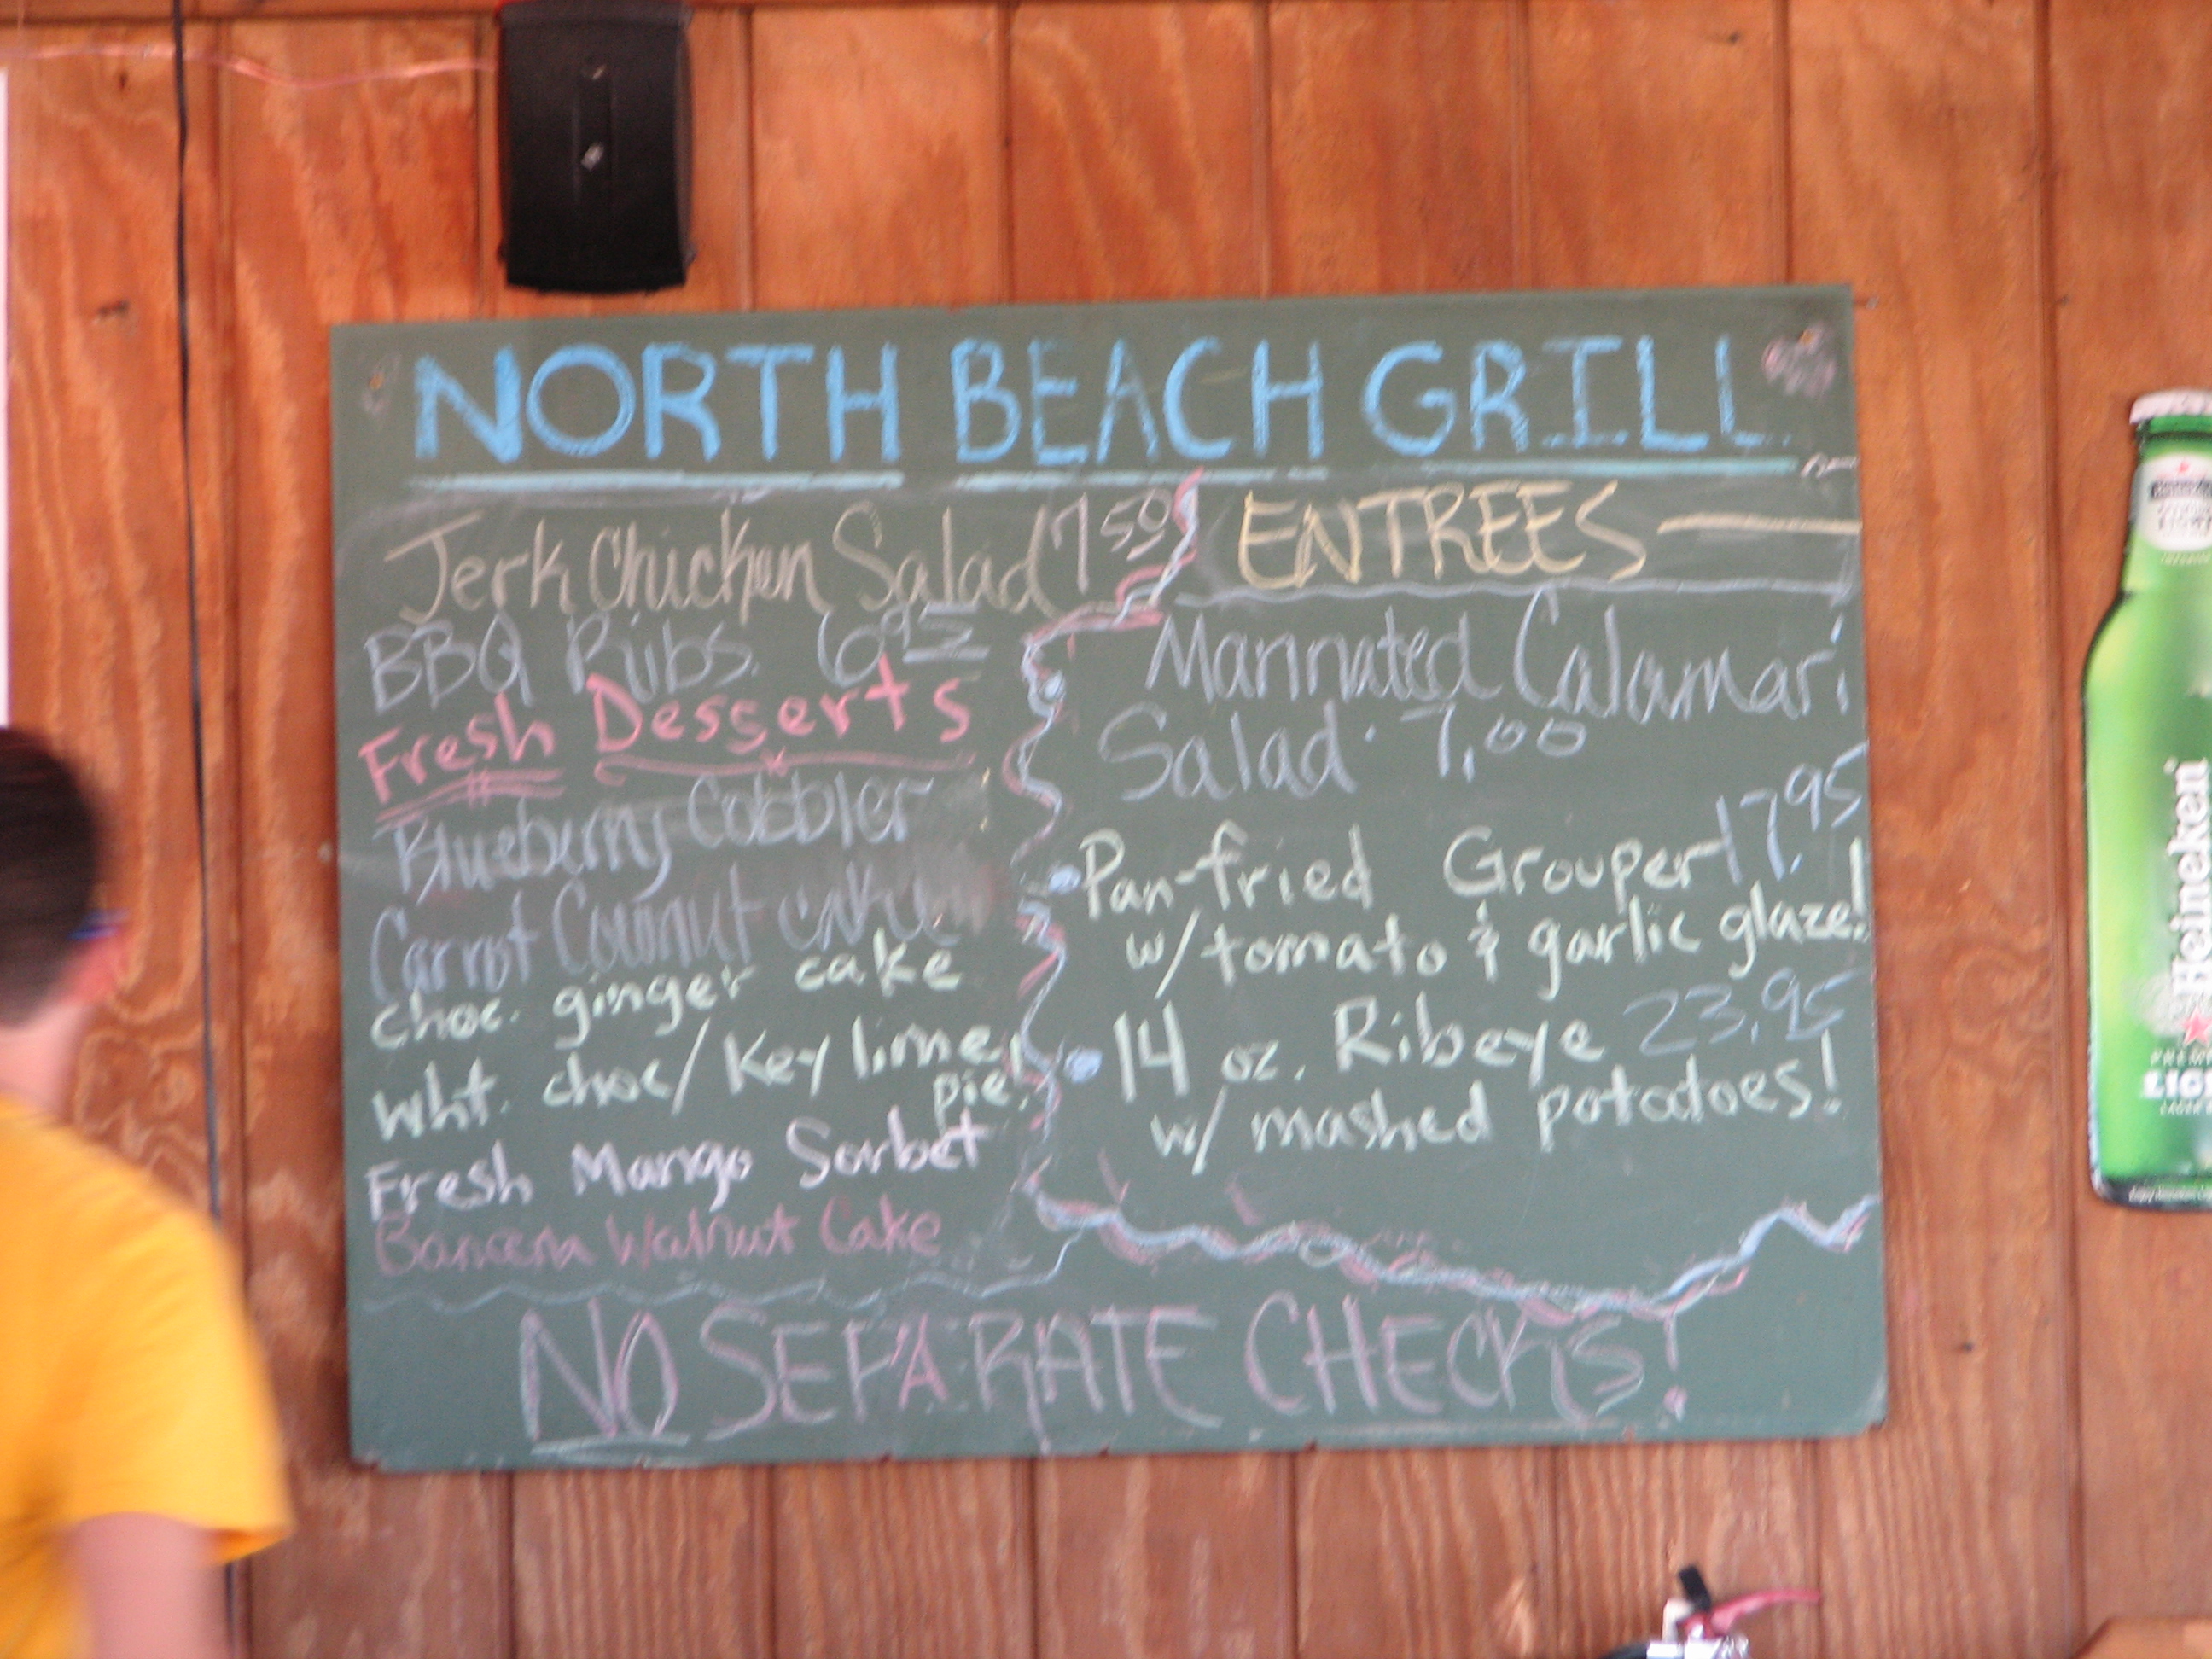 NORTH BEACH GRILL
Jerk Chicken Salad 7 50
BBQ Ribs. 6 95
Fresh Desserts
Blueberry Cobbler
Carrot Coconut cake
choc. ginger cake
wht. choc/Key lime
pie!
Fresh Mango Sorbet
Banana Walnut Cake
ENTREES
Marinated Calamari
Salad. 7.00
Pan-fried Grouper 17.95
w/tomato & garlic glaze!
14 oz. Ribeye 23.95
w/ mashed potatoes!
NO SEPARATE CHECKS!
Heineken